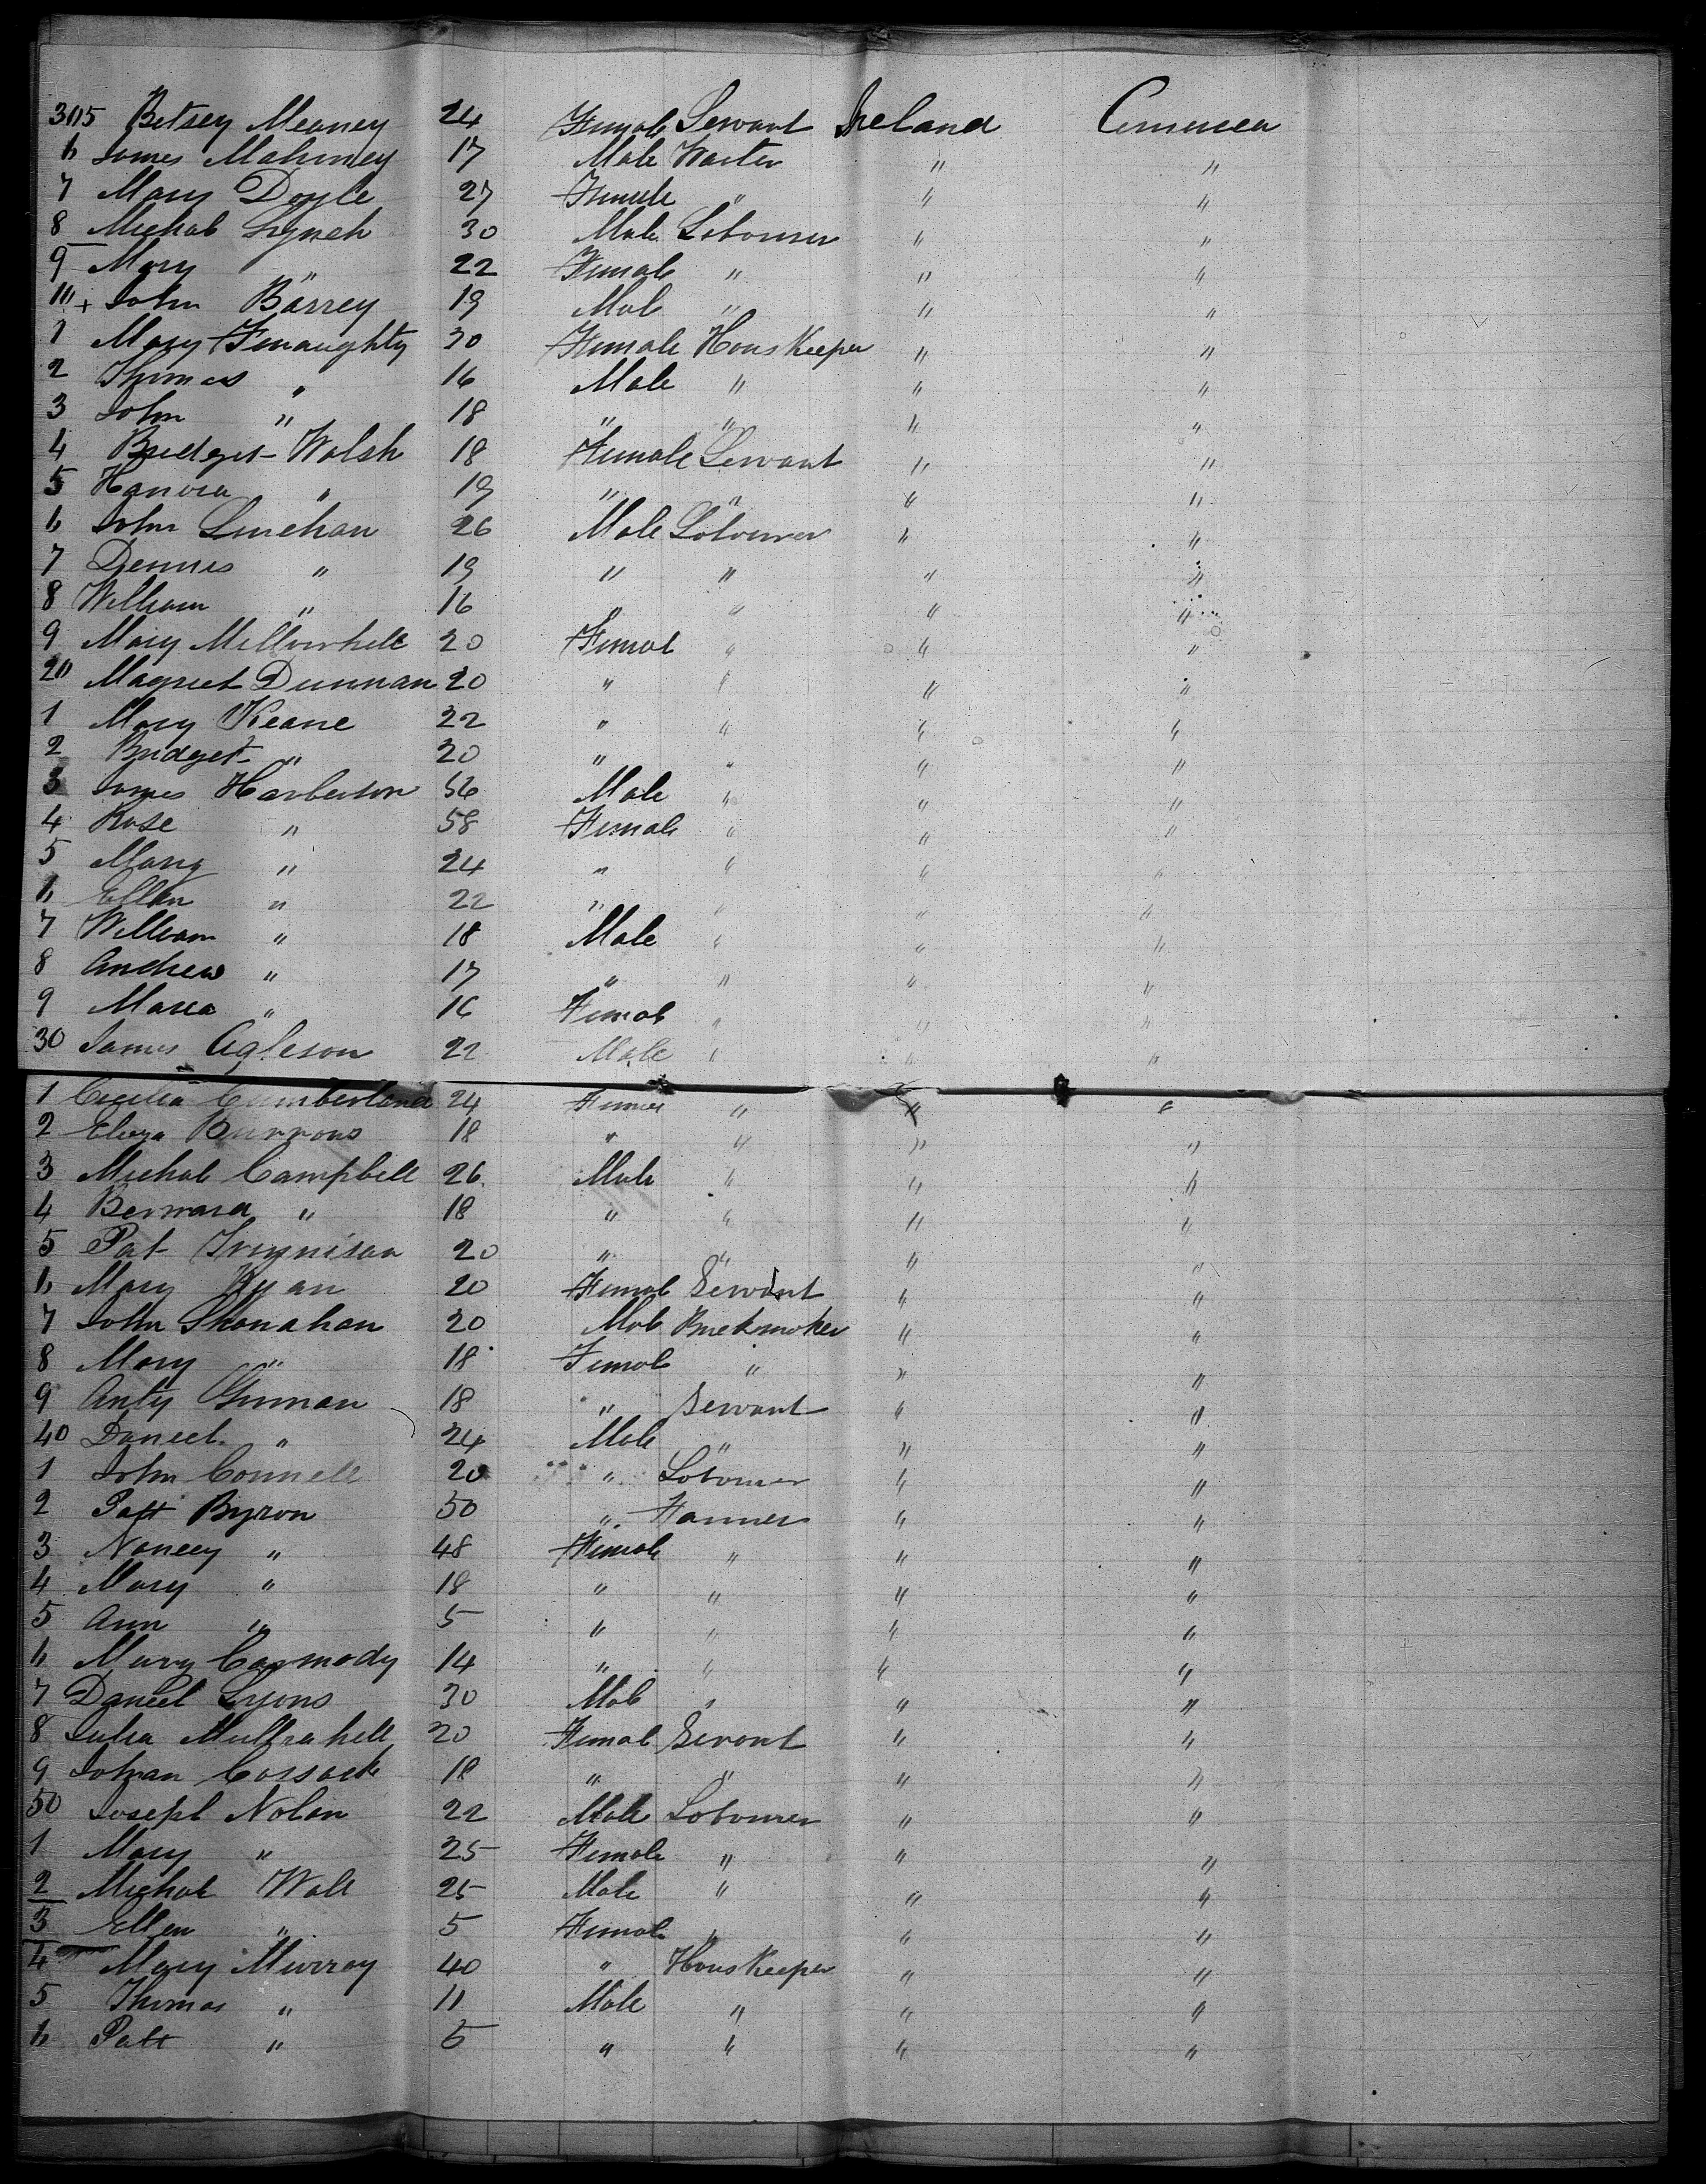 305 Betsey Meaney 24 Female Servant Ireland America
6 James Mahoney 17 Male Waiter " "
7 Mary Doyle 27 Female " " "
8 Michal Lynch 30 Male Labourer " "
9 Mary " 22 Female " " "
10 + John Barrey 19 Male " " "
1 Mary Finaughty 30 Female HousKeeper " "
2 Thomas " 16 Male " " "
3 John " 18 " " " "
4 Bridget Walsh 18 Female Servant " "
5 Hanora " 19 " " " "
6 John Linehan 26 Male Labourer " "
7 Dennis " 19 " " " "
8 William " 16 " " " "
9 Mary 20 Female " " "
20 Magreet Dunnan 20 " " " "
1 Mary Keane 22 " " " "
2 Bridget " 20 " " " "
3 James Harberson 56 Male " " "
4 Rose " 58 Female " " "
5 Mary " 24 " " " "
6 Ellen " 22 " " " "
7 William " 18 Male " " "
8 Andrew " 17 " " " "
9 Maria " 16 Female " " "
30 James Agleson 22 Male " " "
1 Cicilia Cumberland 24 Female " " "
2 Eliza Burrows 18 " " " "
3 Michal Campbell 26 Male " " "
4 Bernard " 18 " " " "
5 Pat 20 " " " "
6 Mary Ryan 20 Female Servant " "
7 John Shanahan 20 Male Brickmaker " "
8 Mary " 18 Female " " "
9 Anty 18 " Servant " "
40 Daniel " 24 Male " " "
1 John Connell 20 " Labourer " "
2 Patt Byron 50 " Farmer " "
3 Nancey " 48 Female " " "
4 Mary " 18 " " " "
5 Ann " 5 " " " "
6 Mary Carmody 14 " " " "
7 Daniel Lyons 30 Male " " "
8 Julia Mullrahill 20 Female Servant " "
9 Johan Cossack 18 " " " "
50 Joseph Nolan 22 Male Labourer " "
1 Mary " 25 Female " " "
2 Michal Wall 25 Male " " "
3 Ellen " 5 Female " " "
4 Mary Murray 40 " HousKeeper " "
5 Thomas " 11 Male " " "
6 Patt " 5 " " " "